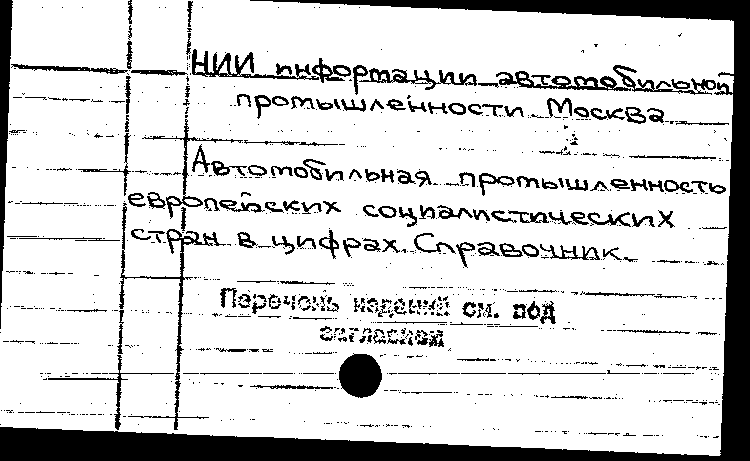 НИИ информации автомобильной
промышленности. Москва
Автомобильная промышленность
европейских социалистических
стран в цифрах. Справочник.
Перечень изданий см. под
заглавием